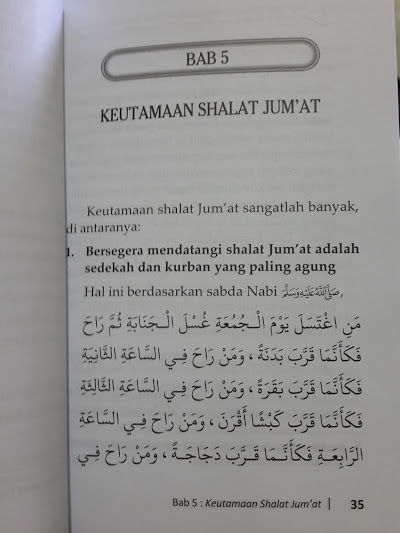 BAB 5
KEUTAMAAN SHALAT JUM'AT
Keutamaan shalat Jum'at sangatlah banyak,
di antaranya:
1. Bersegera mendatangi shalat Jum'at adalah
sedekah dan kurban yang paling agung
Hal ini berdasarkan sabda Nabi ﷺ,
مَنِ اغْتَسَلَ يَوْمَ الْـجُمُعَةِ غُسْلَ الْـجَنَابَةِ ثُمَّ رَاحَ
فَكَأَنَّمَا قَرَّبَ بَدَنَةً ، وَمَنْ رَاحَ فِي السَّاعَةِ الثَّانِيَةِ
فَكَأَنَّمَا قَرَّبَ بَقَرَةً ، وَمَنْ رَاحَ فِـي السَّاعَةِ الثَّالِثَةِ
فَكَأَنَّمَا قَرَّبَ كَبْشًا أَقْرَنَ ، وَمَنْ رَاحَ فِـي السَّاعَةِ
الرَّابِعَـةِ فَكَأَنَّـمَا قَـرَّبَ دَجَاجَـةً ، وَمَنْ رَاحَ فِـي
Bab 5 : Keutamaan Shalat Jum'at | 35